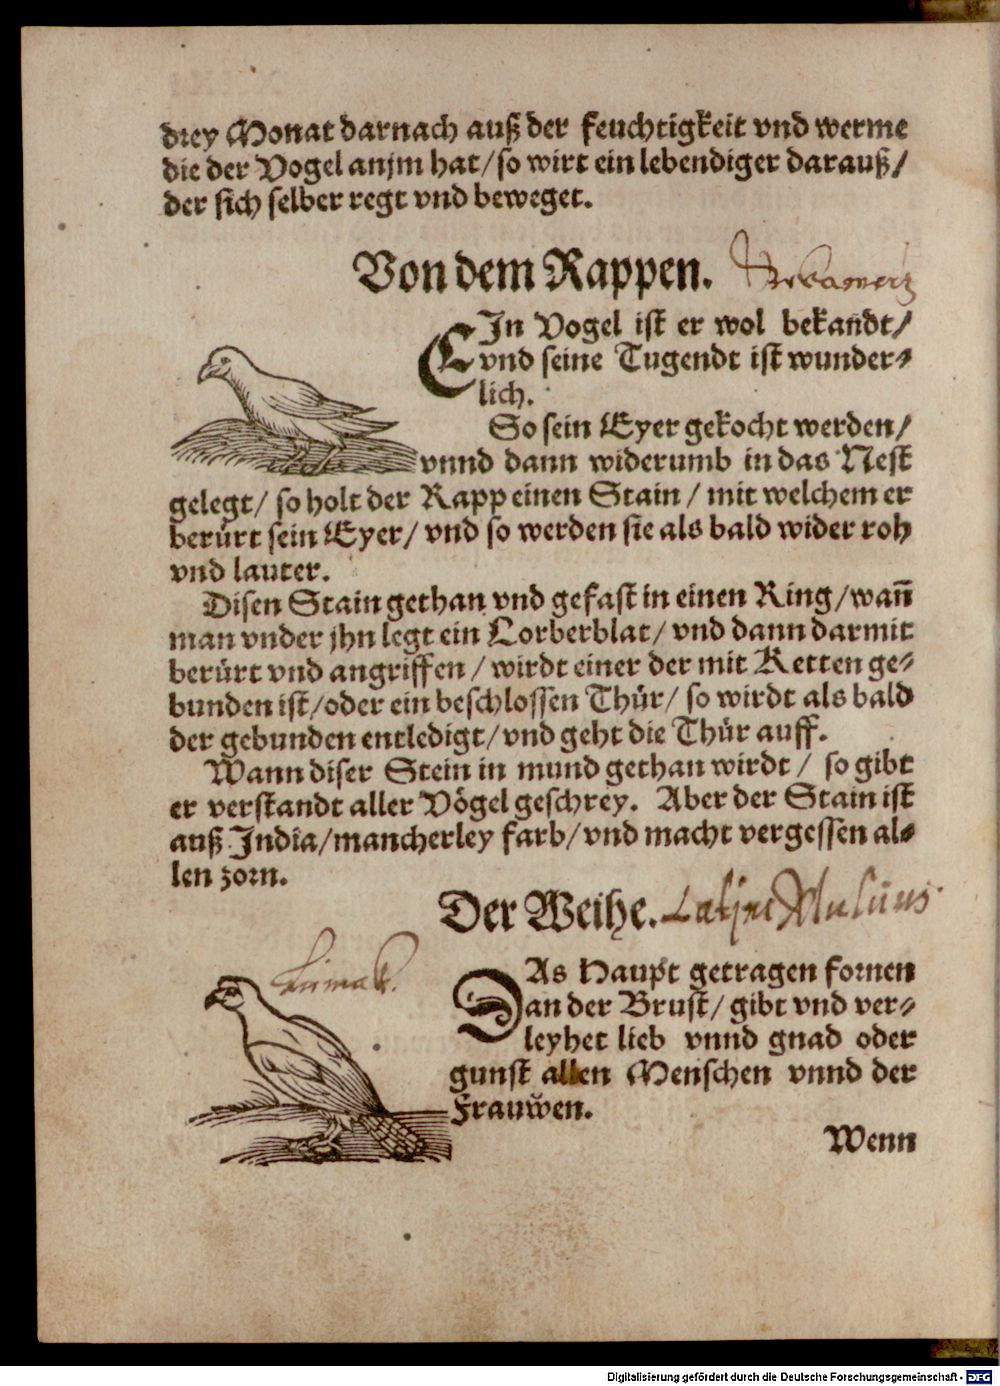 drey Monat darnach auß der feuchtigkeit vnd werme
die der Vogel anjm hat/ so wirt ein lebendiger darauß/
der sich selber regt vnd beweget.
Von dem Rappen.
EIn Vogel ist er wol bekandt/
vnd seine Tugendt ist wunder-
lich.
So sein Eyer gekocht werden/
vnnd dann widerumb in das Nest
gelegt/ so holt der Rapp einen Stain/ mit welchem er
berürt sein Eyer/ vnd so werden sie als bald wider roh
vnd lauter.
Disen Stain gethan vnd gefast in einen Ring/ wañ
man vnder jhn legt ein Lorberblat/ vnd dann darmit
berürt vnd angriffen/ wirdt einer der mit Ketten ge-
bunden ist/ oder ein beschlossen Thür/ so wirdt als bald
der gebunden entledigt/ vnd geht die Thür auff.
Wann diser Stein in mund gethan wirdt/ so gibt
er verstandt aller Vögel geschrey. Aber der Stain ist
auß India/ mancherley farb/ vnd macht vergessen al-
len zorn.
Der Weihe.
DAs Haupt getragen fornen
an der Brust/ gibt vnd ver-
leyhet lieb vnnd gnad oder
gunst allen Menschen vnnd der
Frauwen.
Wenn
Digitalisierung gefördert durch die Deutsche Forschungsgemeinschaft - DFG